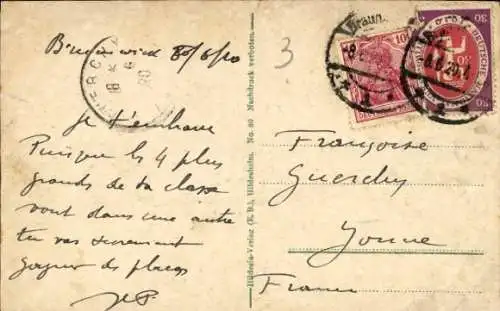 8/6/20
Je t'embrasse
Puisque les 4 plus
grands de ta classe
vont dans une autre
tu vas sûrement
gagner des places
JP.
3
Hildesia-Verlag (R. B.), Hildesheim. No. 80 Nachdruck verboden.
Braun
10
30
30
GUERCHY
18
20
Françoise
Guerchy
Yonne
France